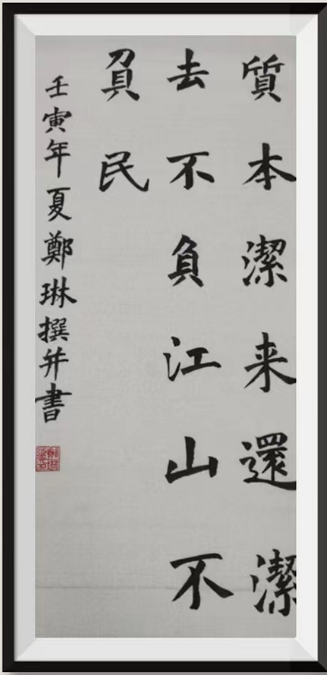 質本潔来還潔
去不負江山不
負民
壬寅年夏鄭琳撰并書